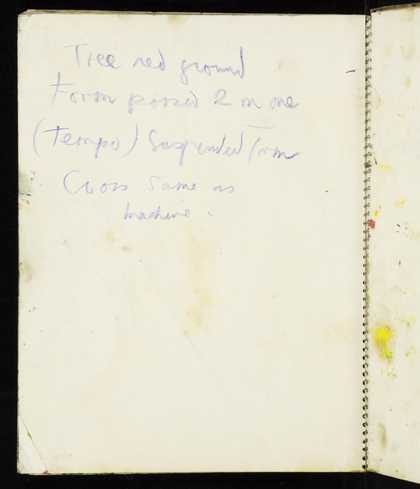 Tree red ground
Form poised 2 in one
(Tempo) Suspended Form
Cross same as
machine.